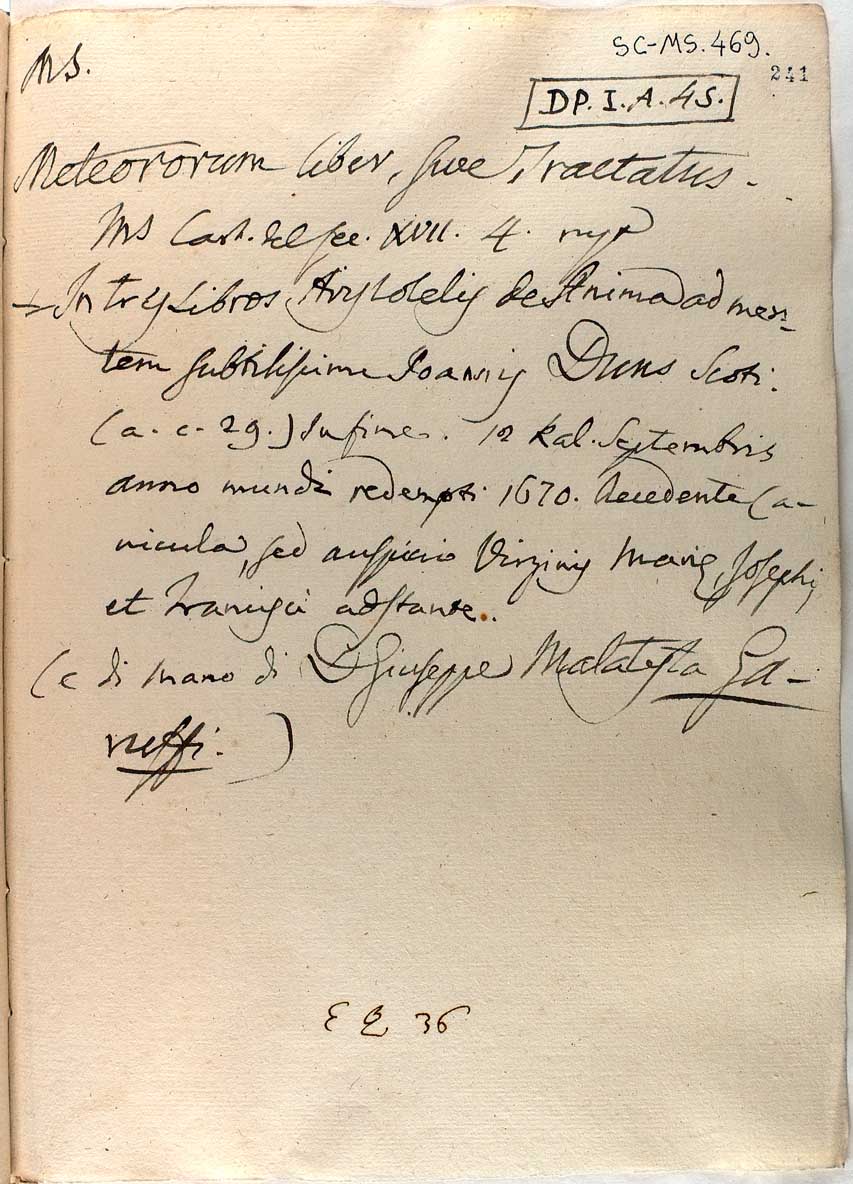 SC-MS. 469.
241
MS.
DP. I. A. 45.
Meteororum liber, sive Tractatus.
MS Cart. del sec. XVII. 4.
- In tres Libros Aristotelis de Anima ad men-
tem subtilissimi Joannis Duns Scoti.
(a. c. 29.) In fine. 12 Kal. Septembris
anno mundi redempti 1670. Accedente Ca-
nicula, sed auspicio Virginis Marię, Josephi,
et Francisci adstante.
(è di mano di D Giuseppe Malatesta Ga-
neffi.)
E Q 36